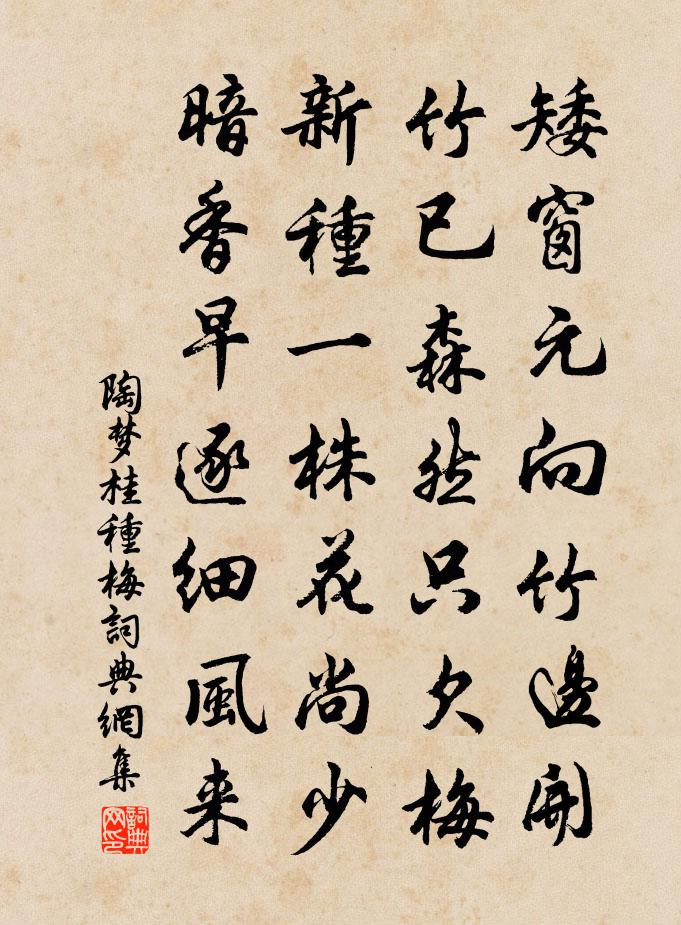 矮窗元向竹邊開
竹已森然只欠梅
新種一株花尚少
暗香早逐細風来
陶梦桂種梅詞典網集
詞典网印